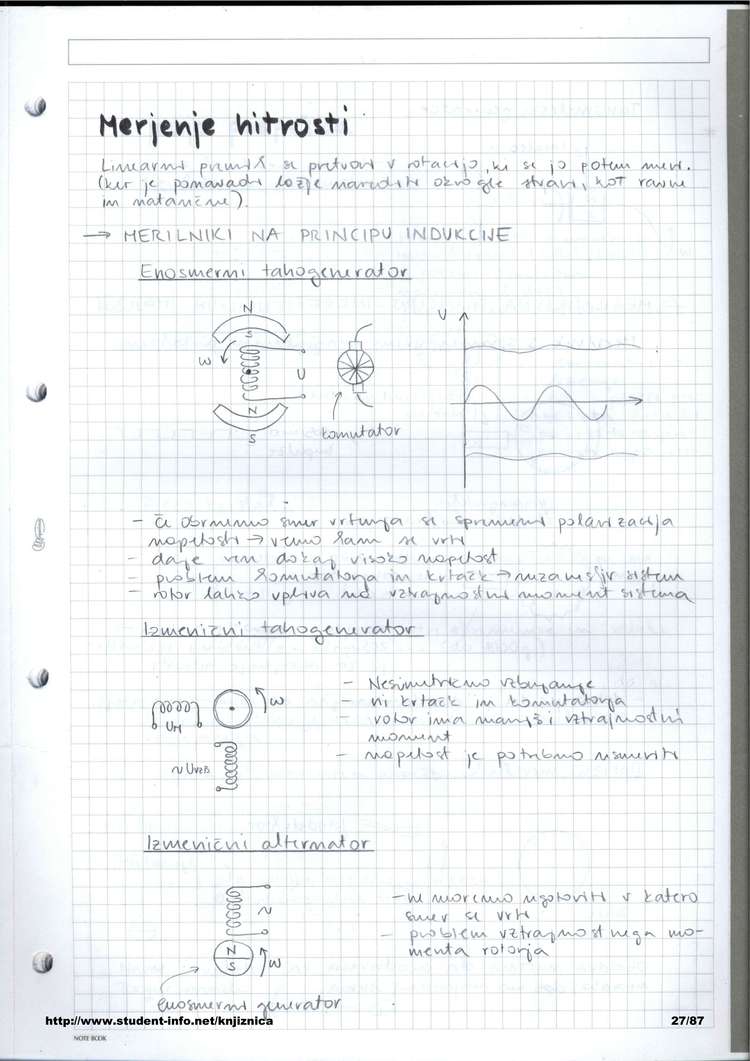 Merjenje hitrosti
Linearni premik se pretvori v rotacijo, ki se jo potem meri.
(ker je ponavadi ložje narediti okrogle stvari, kot ravne
in natančne).
→ MERILNIKI NA PRINCIPU INDUKCIJE
Enosmerni tahogenerator
N
S
ω
U
N
S
komutator
U
- Če obrnemo smer vrtenja se spremeni polarizacija
napetosti → vemo kam se vrti
- daje ven dokaj visoko napetost
- problem komutatorja in krtačk → nezanesljiv sistem
- rotor lahko vpliva na vztrajnostni moment sistema
Izmenični tahogenerator
UM
ω
~ Uvzb
- Nesimetrično vzbujanje
- ni krtačk in komutatorja
- rotor ima manjši vztrajnostni
moment
- napetost je potrebno usmeriti
Izmenični alternator
~
N
S
ω
enosmerni generator
- ne moremo ugotoviti v katero
smer se vrti
- problem vztrajnostnega mo-
menta rotorja
http://www.student-info.net/knjiznica
27/87
NOTE BOOK